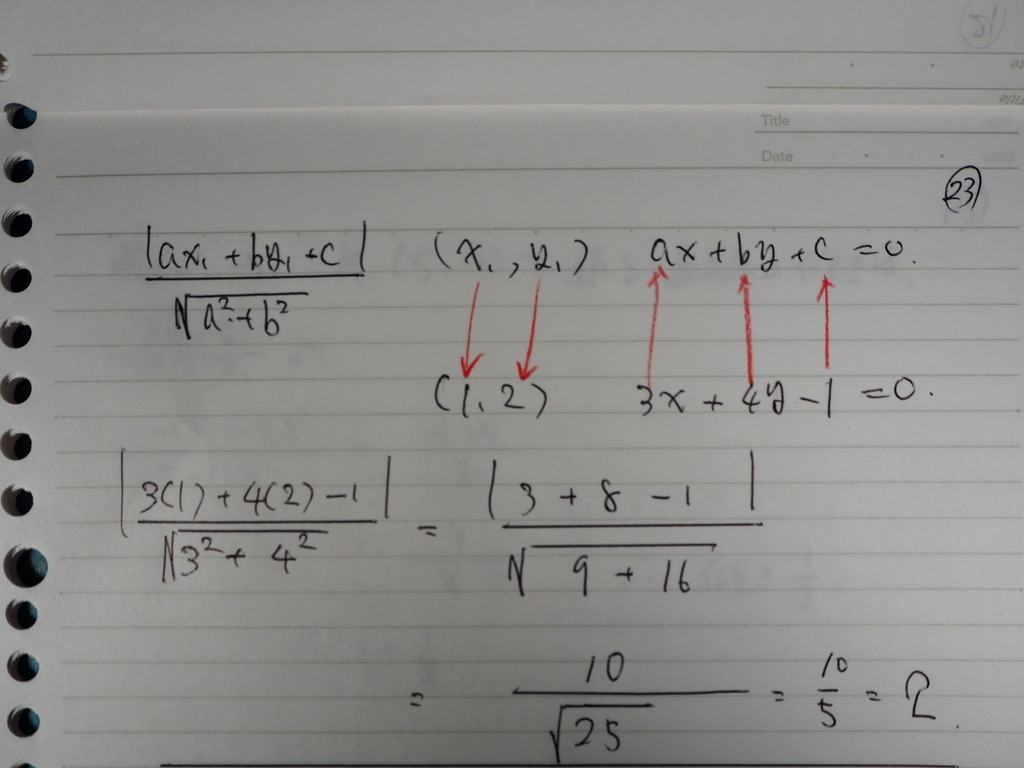 51
Title
Date
23
|ax₁ + by₁ + c| / √(a² + b²) (x₁, y₁) ax + by + c = 0.
(1, 2) 3x + 4y - 1 = 0.
|3(1) + 4(2) - 1| / √(3² + 4²) = |3 + 8 - 1| / √(9 + 16)
= 10 / √25 = 10/5 = 2.